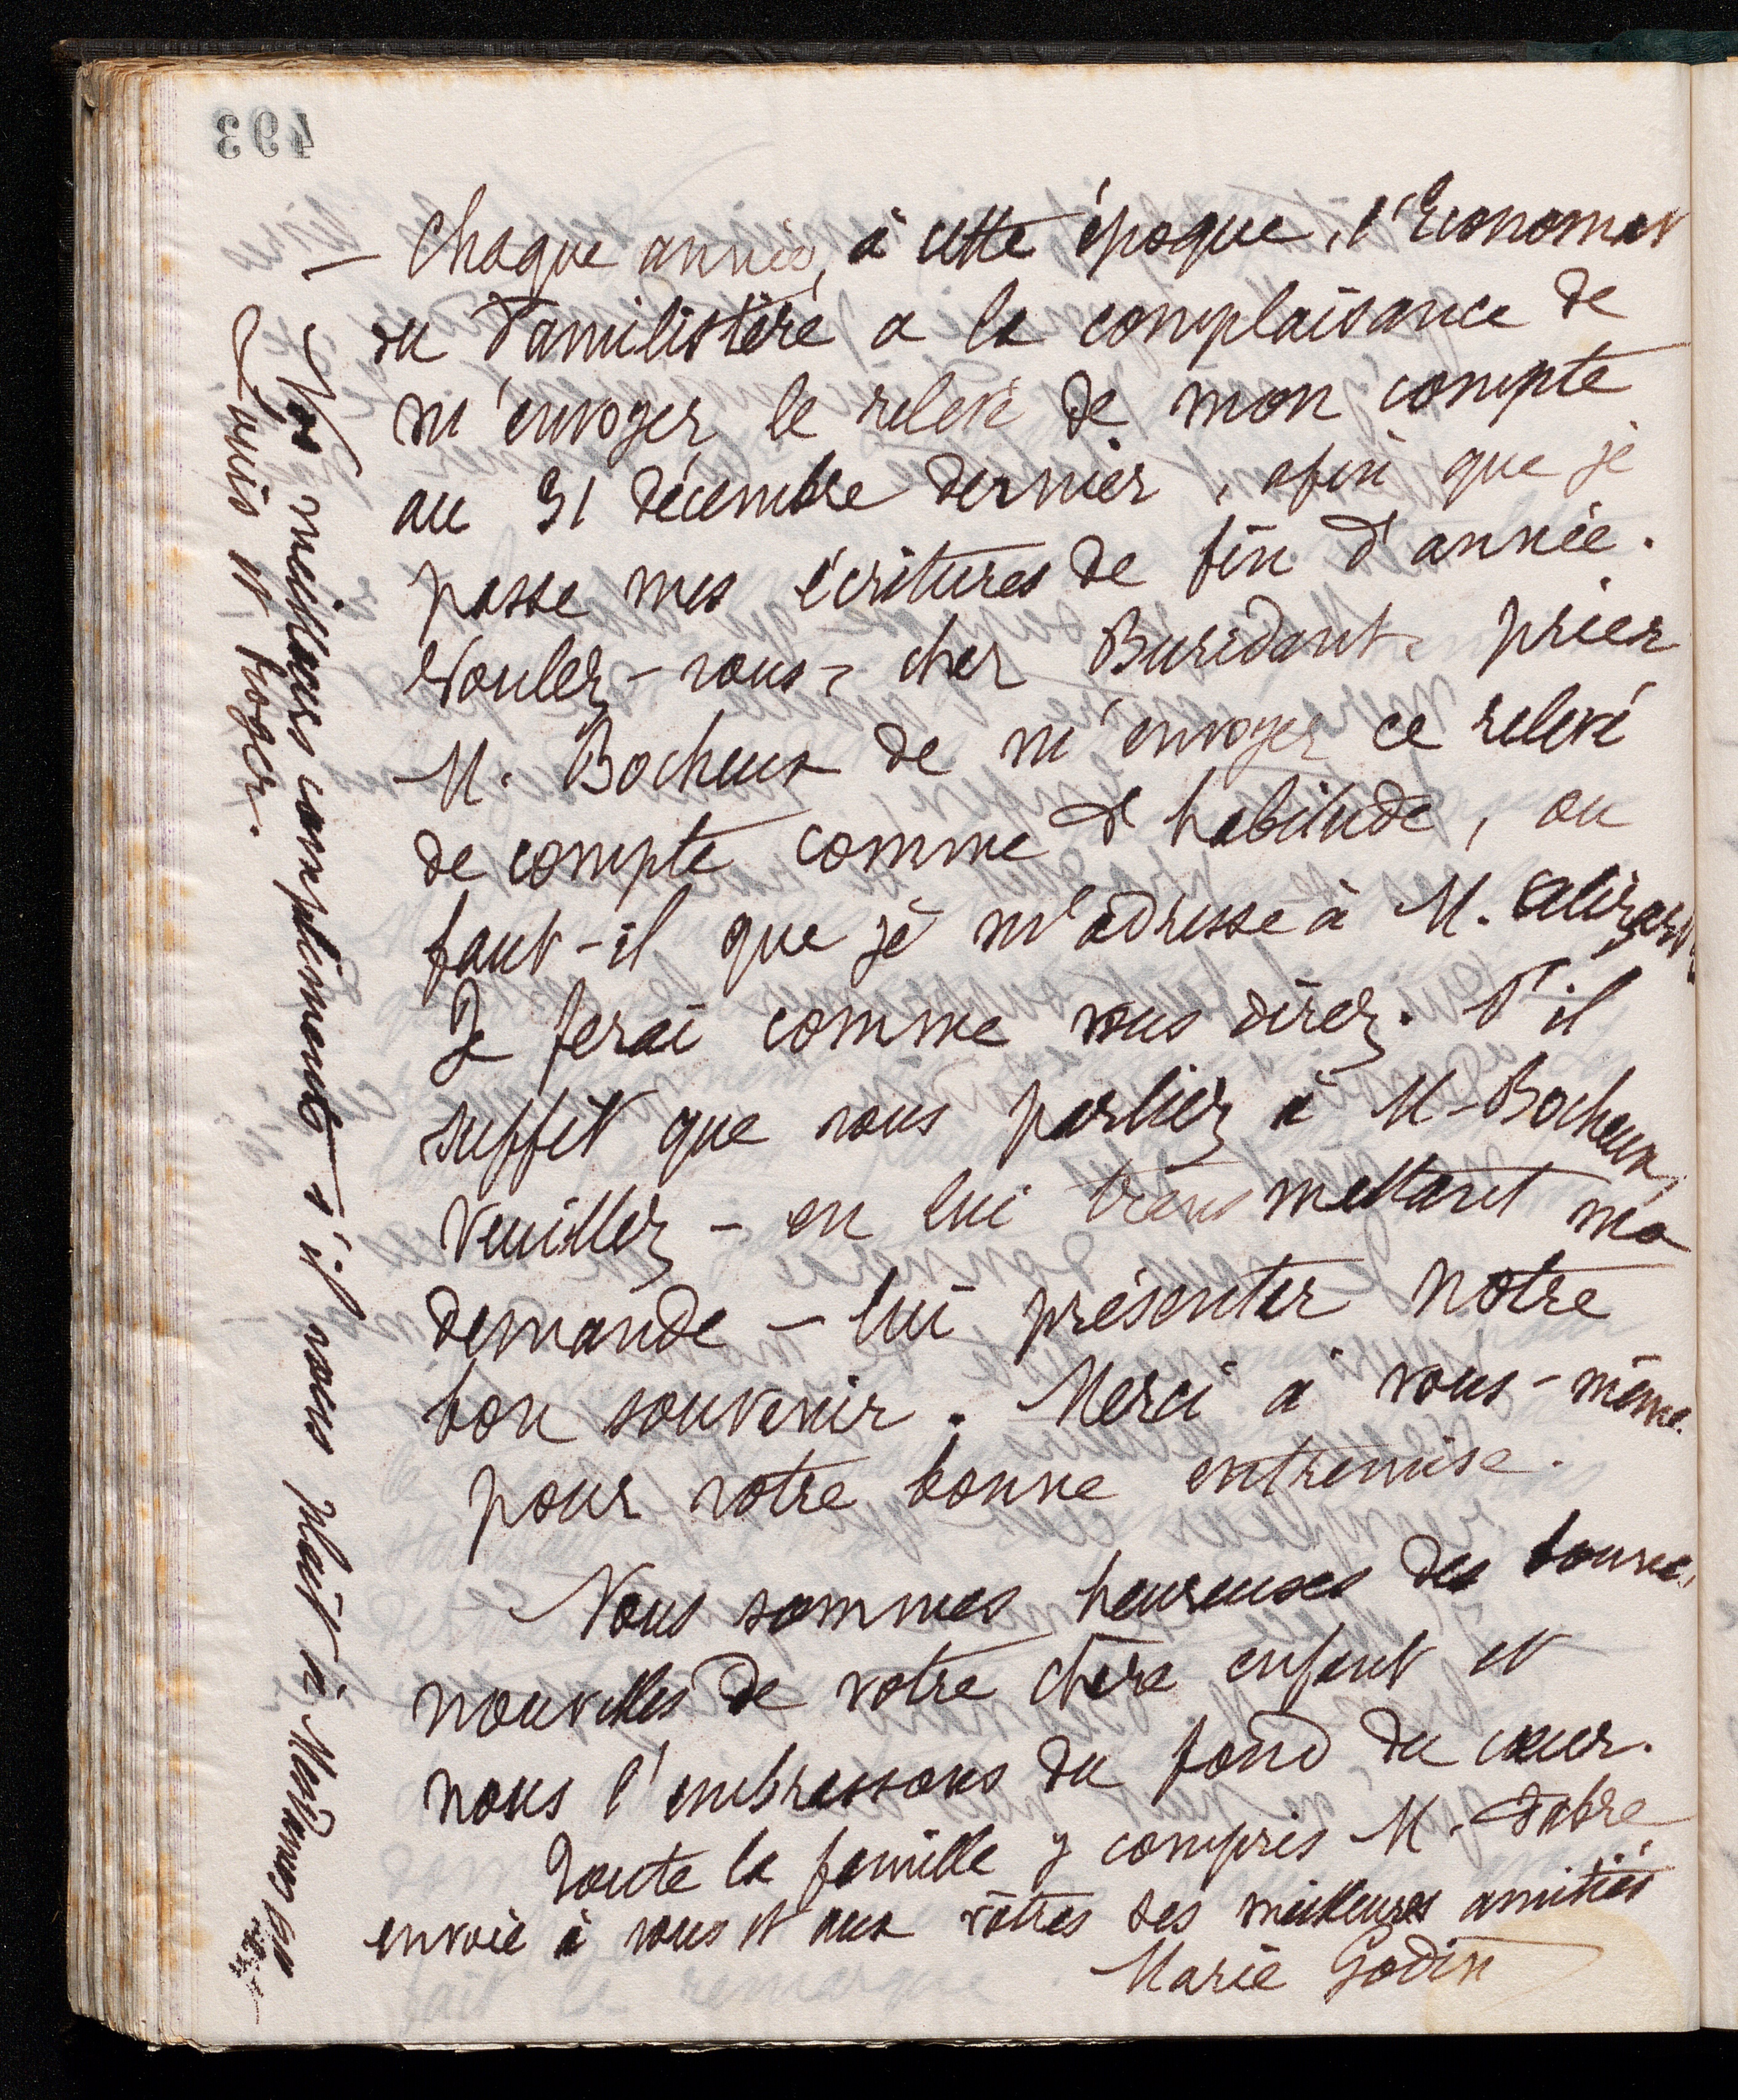 493
— Chaque année, à cette époque, l'Economat
du Familistère a la complaisance de
m'envoyer le relevé de mon compte
au 31 décembre dernier, afin que je
passe mes écritures de fin d'année.
Voulez-vous, cher Buridant, prier
M. Bocheux de m'envoyer ce relevé
de compte comme d'habitude, ou
faut-il que je m'adresse à M. Alizart
Je ferai comme vous direz. S'il
suffit que vous parliez à M. Bocheux,
veuillez – en lui transmettant ma
demande – lui présenter notre
bon souvenir. Merci à vous-même
pour votre bonne entremise.
Nous sommes heureuses des bonnes
nouvelles de votre chère enfant et
nous l'embrassons du fond du cœur.
Toute la famille y compris M. Fabre
envoie à vous et aux vôtres ses meilleures amitiés
Marie Godin
Nos meilleurs compliments s'il vous plait à Mesdames
Louis et Roger.